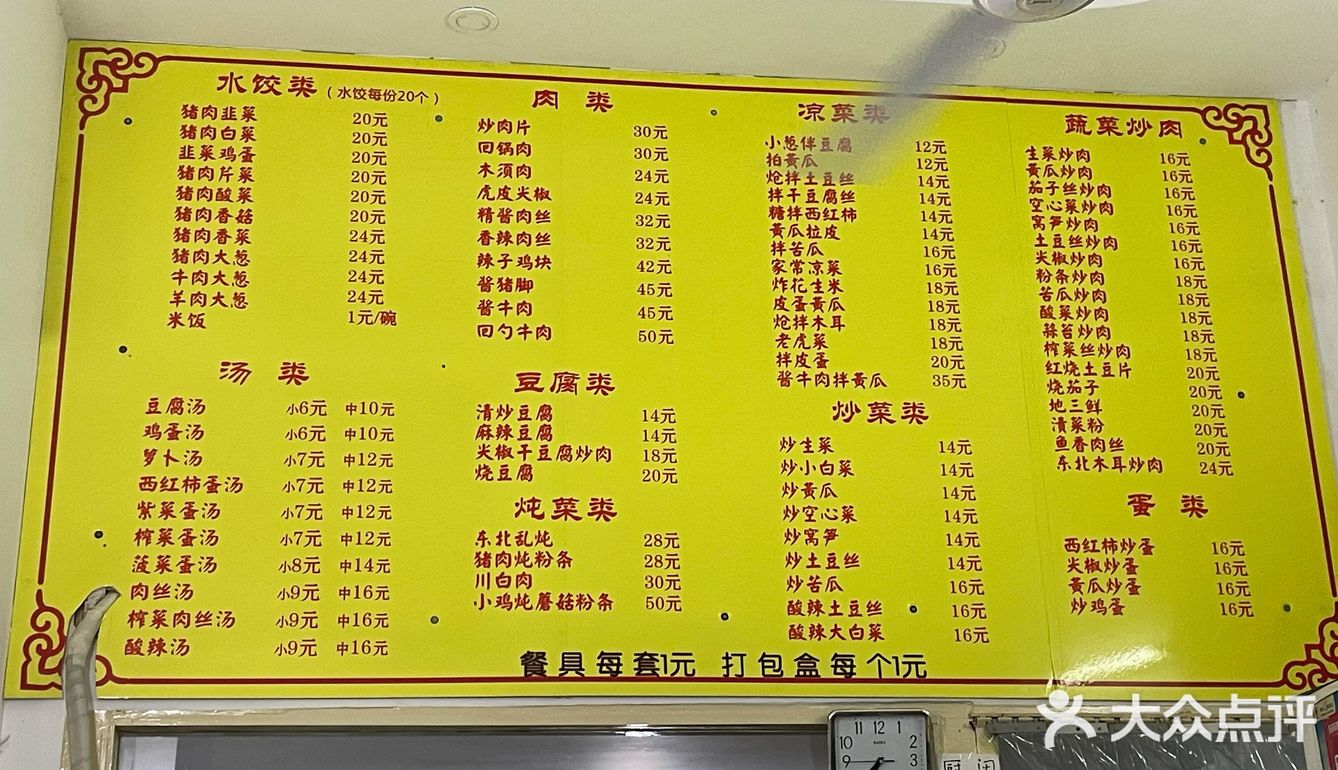 水饺类（水饺每份20个）
猪肉韭菜 20元
猪肉白菜 20元
韭菜鸡蛋 20元
猪肉芹菜 20元
猪肉酸菜 20元
猪肉香菇 20元
猪肉香菜 24元
猪肉大葱 24元
牛肉大葱 24元
羊肉大葱 24元
米饭 1元/碗
汤类
豆腐汤 小6元 中10元
鸡蛋汤 小6元 中10元
萝卜汤 小7元 中12元
西红柿蛋汤 小7元 中12元
紫菜蛋汤 小7元 中12元
榨菜蛋汤 小7元 中12元
菠菜蛋汤 小8元 中14元
肉丝汤 小9元 中16元
榨菜肉丝汤 小9元 中16元
酸辣汤 小9元 中16元
肉类
炒肉片 30元
回锅肉 30元
木须肉 24元
虎皮尖椒 24元
精酱肉丝 32元
香辣肉丝 32元
辣子鸡块 42元
酱猪脚 45元
酱牛肉 45元
回勺牛肉 50元
豆腐类
清炒豆腐 14元
麻辣豆腐 14元
尖椒干豆腐炒肉 18元
烧豆腐 20元
炖菜类
东北乱炖 28元
猪肉炖粉条 28元
川白肉 30元
小鸡炖蘑菇粉条 50元
凉菜类
小葱伴豆腐 12元
拍黄瓜 12元
炝拌土豆丝 14元
拌干豆腐丝 14元
糖拌西红柿 14元
黄瓜拉皮 14元
拌苦瓜 16元
家常凉菜 16元
炸花生米 18元
皮蛋黄瓜 18元
炝拌木耳 18元
老虎菜 18元
拌皮蛋 20元
酱牛肉拌黄瓜 35元
炒菜类
炒生菜 14元
炒小白菜 14元
炒黄瓜 14元
炒空心菜 14元
炒窝笋 14元
炒土豆丝 14元
炒苦瓜 16元
酸辣土豆丝 16元
酸辣大白菜 16元
蔬菜炒肉
生菜炒肉 16元
黄瓜炒肉 16元
茄子丝炒肉 16元
空心菜炒肉 16元
窝笋炒肉 16元
土豆丝炒肉 16元
尖椒炒肉 16元
粉条炒肉 18元
苦瓜炒肉 18元
酸菜炒肉 18元
蒜苔炒肉 18元
榨菜丝炒肉 18元
红烧土豆片 20元
烧茄子 20元
地三鲜 20元
渍菜粉 20元
鱼香肉丝 20元
东北木耳炒肉 24元
蛋类
西红柿炒蛋 16元
尖椒炒蛋 16元
黄瓜炒蛋 16元
炒鸡蛋 16元
餐具每套1元 打包盒每个1元
大众点评